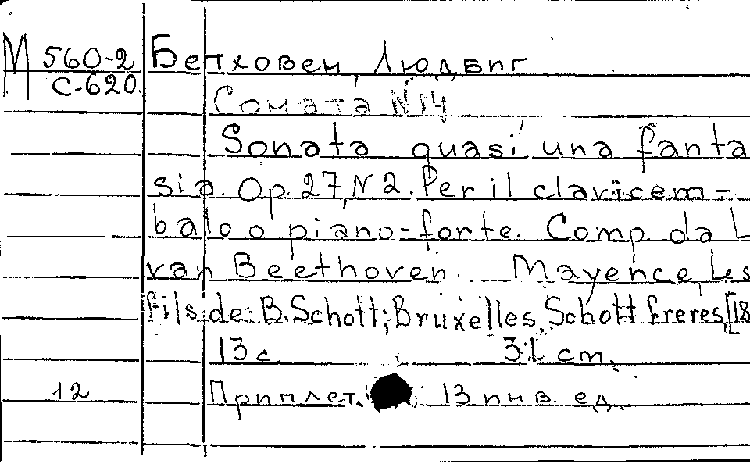 М 560-2 Бетховен, Людвиг
С-620
Соната N14
Sonata quasi una fanta
sia. Op. 27, N 2. Per il clavicem-
balo o piano-forte. Comp. da L
van Beethoven. Mayence, Les
fils de B. Schott; Bruxelles, Schott freres, [18
13 с. 31 cm.
12 Приплет. 13 инв. ед.